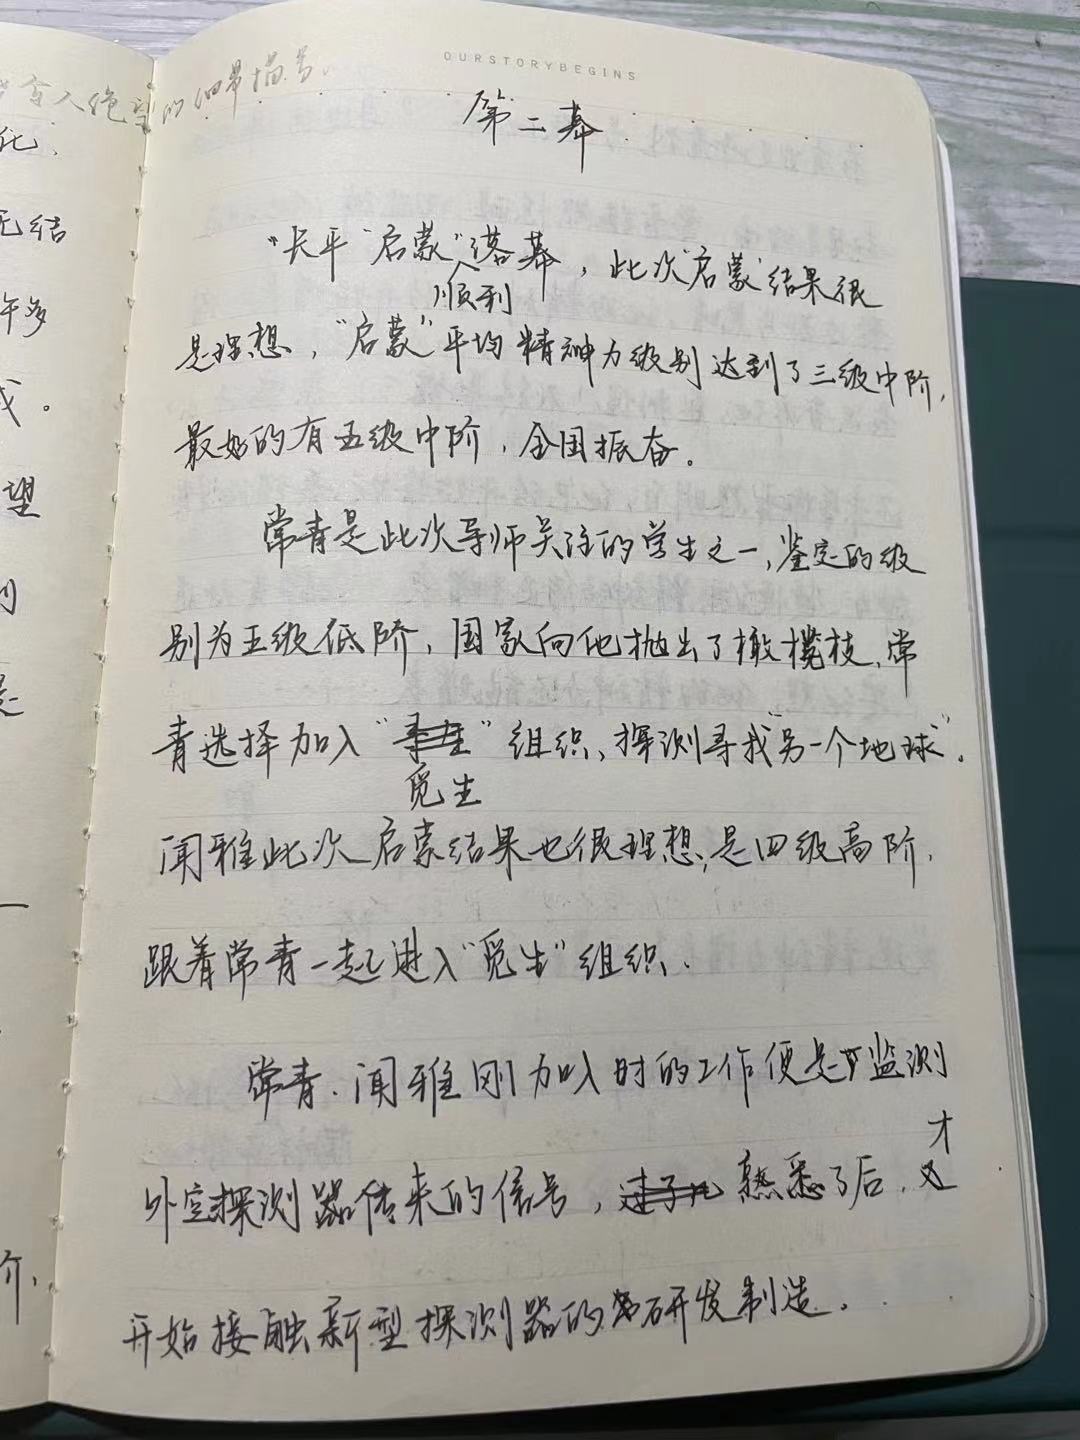 OURSTORYBEGINS
第二幕
“长平“启蒙”落幕，此次“启蒙”结果很
顺利
是理想，“启蒙”平均精神力级别达到了三级中阶，
最好的有五级中阶，全国振奋。
常青是此次导师关注的学生之一，鉴定的级
别为五级低阶，国家向他抛出了橄榄枝，常
青选择加入“”组织、探测寻找“另一个地球”。
觅生
闻雅此次启蒙结果也很理想，是四级高阶，
跟着常青一起进入“觅生”组织、
常青、闻雅刚加入时的工作便是监测
才
外空探测器传来的信号，熟悉了后，
开始接触新型探测器的研发制造。
化、
无结
许多
成。
望
到
是
一
介，